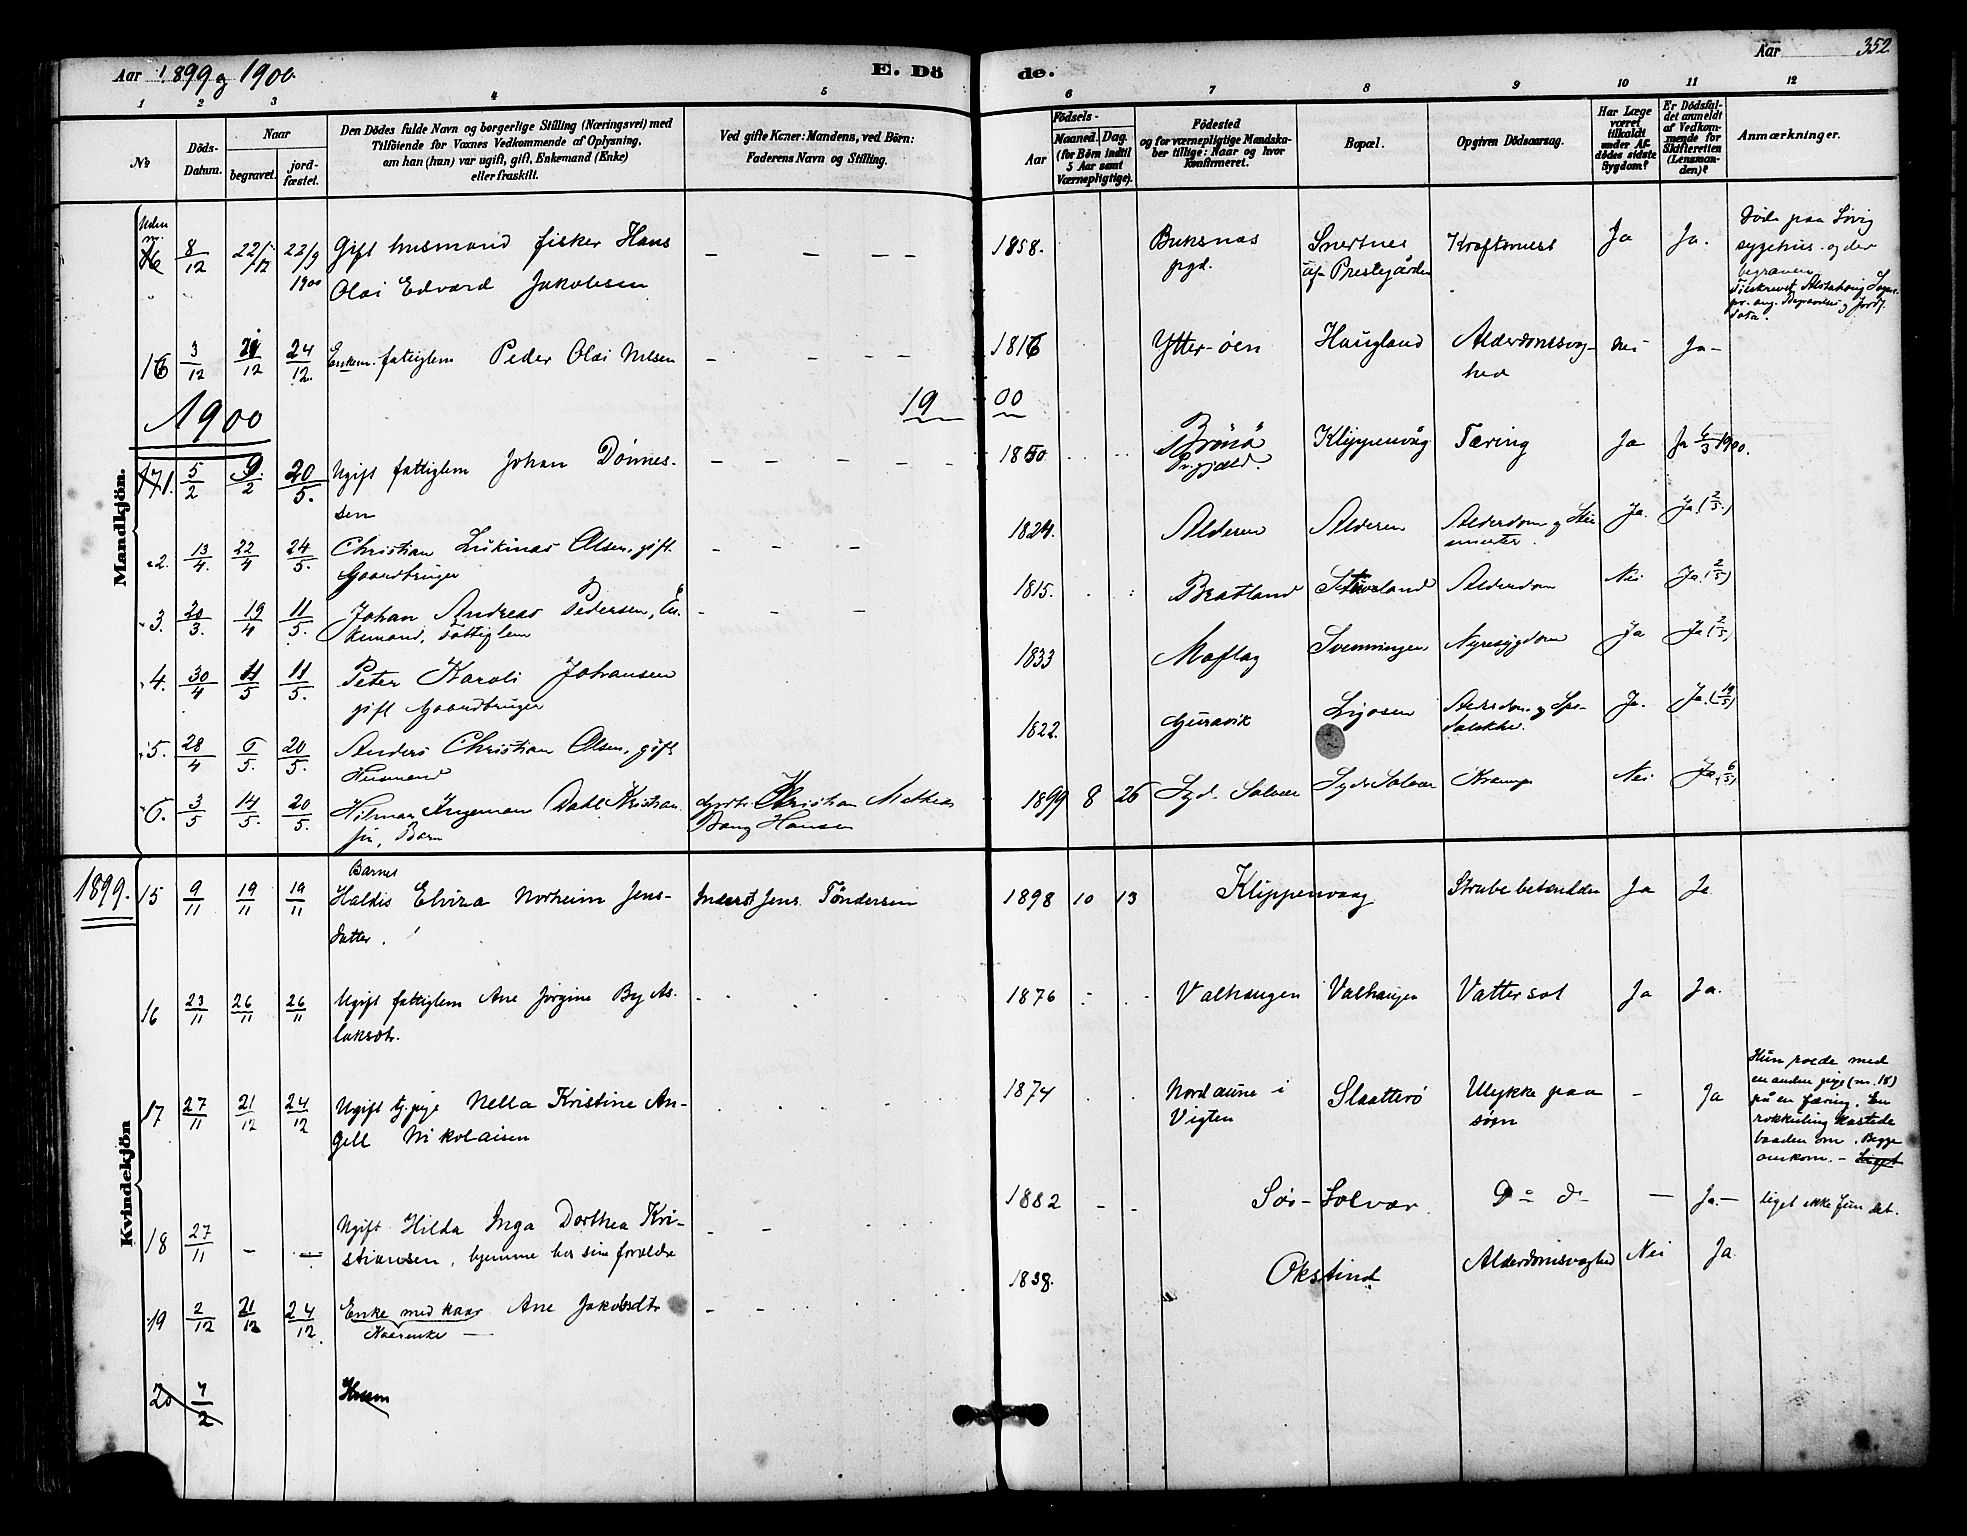 Aar 1899 og 1900.
E. Dö de.
Aar 352
1 2 3 4 5 6 7 8 9 10 11 12
No
Döds-Datum.
Naar
begravet.
jord-fæstet.
Den Dödes fulde Navn og borgerlige Stilling (Næringsvei) med
Tilföiende for Voxnes Vedkommende af Oplysning,
om han (hun) var ugift, gift, Enkemand (Enke)
eller fraskilt.
Ved gifte Koner: Mandens, ved Börn:
Faderens Navn og Stilling.
Födsels-
Aar
Maaned. Dag.
(for Börn indtil
5 Aar samt
Værnepligtige).
Födested
og for værnepligtige Mandska-
ber tillige: Naar og hvor
konfirmeret.
Bopæl.
Opgiven Dödsaarsag.
Har Læge
været
tilkaldt
under Af-
dödes sidste
Sygdom?
Er Dödsfal-
det anmeldt
af Vedkom-
mende for
Skifteretten
(Lensman-
den)?
Anmærkninger.
Mandkjön.
Uden
nr.
16 8/12 22/12 22/9 1900 Gift husmand fisker Hans
Olai Edvard Jakobsen
1858. Buksnas
pgd. Snertnes
u/ Prestegården Kraftsaars Ja Ja.
Døde paa Søvig
sygehus og der
begraven
Tilskrevet Alstahoug Sogne-
pr. ang. Begravelse og Jordf.
data.
16 3/12 21/12 24/12. Enkem. fattiglem Peder Olai Nilsen 1816 Ytter-öen Haugland Alderdomssvag-
hed nei Ja-
1900 19 00
171. 5/2 9/2 20/5. Ugift fattiglem Johan Dønnes-
sen 1850 Brönö
Pr.gjæld. Klippenvåg Tæring Ja Ja 6/3 1900.
2. 13/4. 22/4 24/5. Christian Lukinas Olsen, gift
Gaardbruger 1824. Alderen Alderen Alderdom og Ja. Ja. (2/5.)
3. 20/3. 19/4 11/5. Johan Andreas Pedersen, En-
kemand, Fattiglem 1815. Bratland Alderdom Nei Ja. (2/5)
4. 30/4 11/5 11/5. Peter Karoli Johansen
gift Gaardbruger 1833 Moflag Svenningen Nyresygdom Ja Ja (2/5)
5. 28/4 6/5. 20/5. Anders Christian Olsen, gift
Husmand 1822. Gjuravik Ljøsen Alderdom og Ja. Ja. (19/5)
6. 3/5 14/5. 20/5. Hilmar Ingeman Dahl Kristian-
sen, Barn Kristian Mathias
Bang Hansen 1899 8 26 Syd. Solvær Syd. Solvær Krampe Nei Ja. (6/5)
Kvindekjön
1899.
15 9/11 19/11 19/11 Barnet
Haldis Elvira Norheim Jens-
datter. Inderst Jens Tøndersen 1898 10 13 Klippenvaag Strubebetændelse Ja Ja
16 23/11 26/11 26/11 Ugift fattiglem Ane Jørgine By As-
laksdtr. 1876 Valhaugen Valhaugen Vattersot Ja Ja.
17 27/11 21/12 24/12 Ugift tj.pige Nella Kristine An-
gell Nikolaisen 1874 Nordaune i
Vigten Slaatterø Ulykke paa
søen - Ja
Hun roede med
en anden pige (nr. 18)
på en færing. En
rokkuling kastede
baaden om. Begge
omkom. - Liget
18 27/11 - - Ugift Hilda Inga Dorthea Kri-
stiansen, hjemme hos sine forældre 1882 - - Sør-Solvær Do do - Ja.- liget ikke fundet.
19 2/12 21/12 24/12. Enke med kaar Ane Jakobsdtr
Kaarenke - 1838. Okstind Alderdomssvaghed Nei Ja.
20 7/2